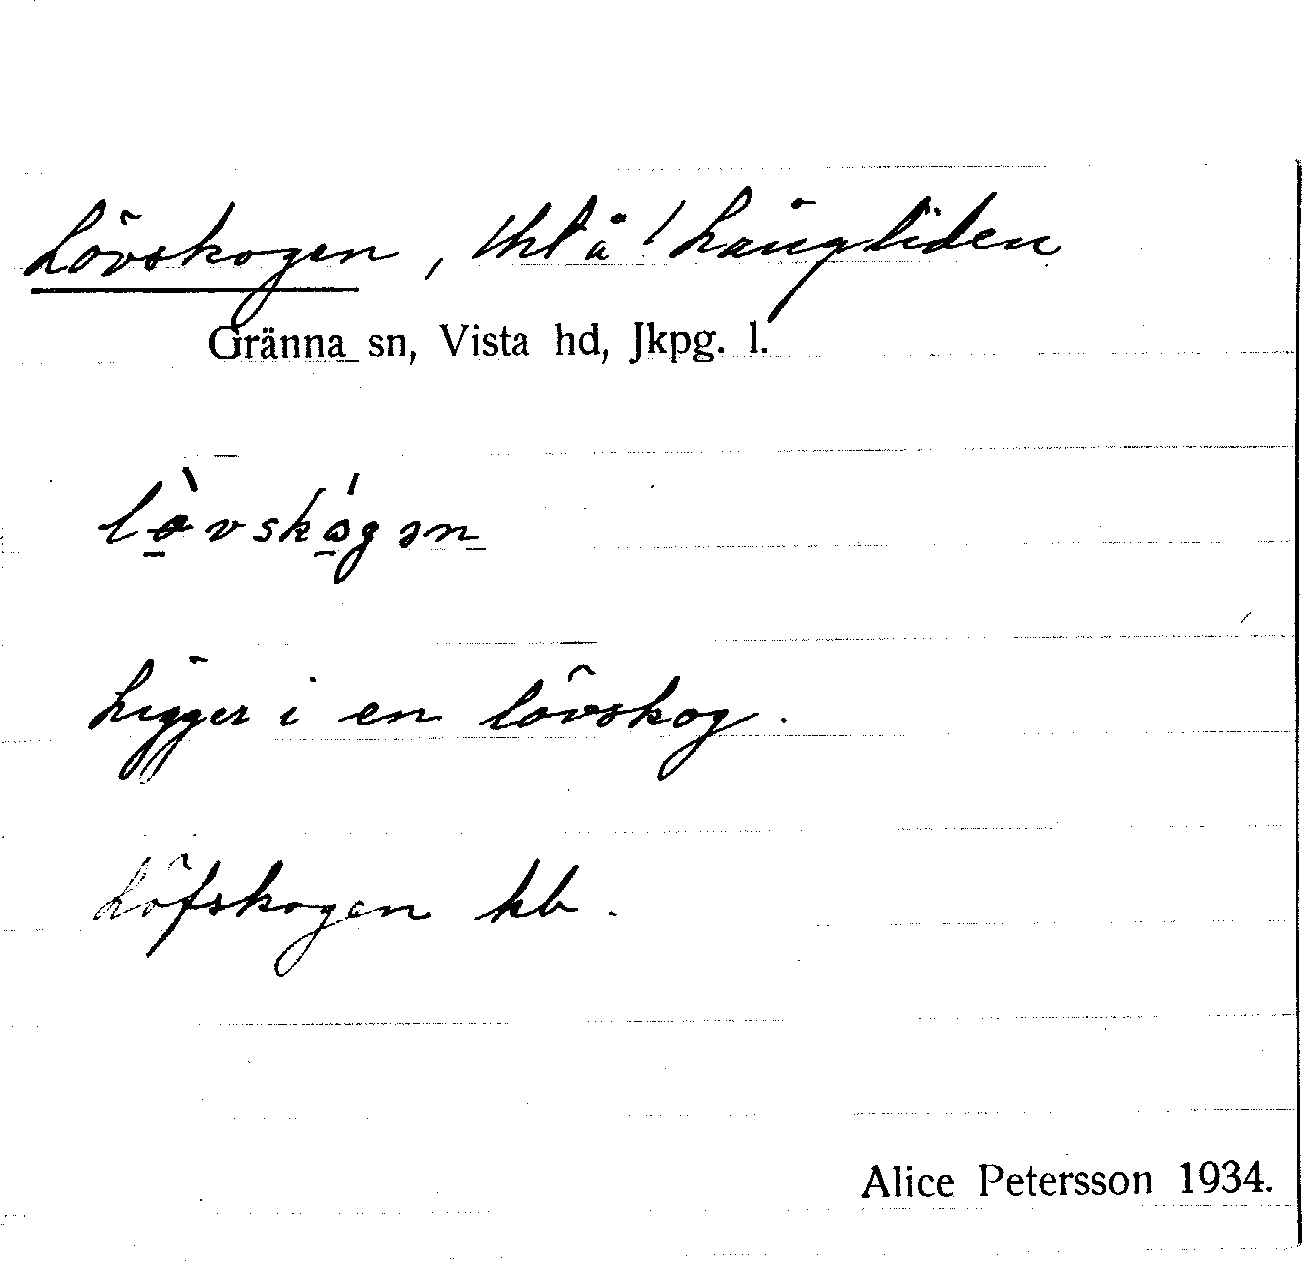 Lövskogen, thl å ! Långliden
Gränna sn, Vista hd, Jkpg. l.
Ligger i en lövskog.
Löfskogen kb.
Alice Petersson 1934.